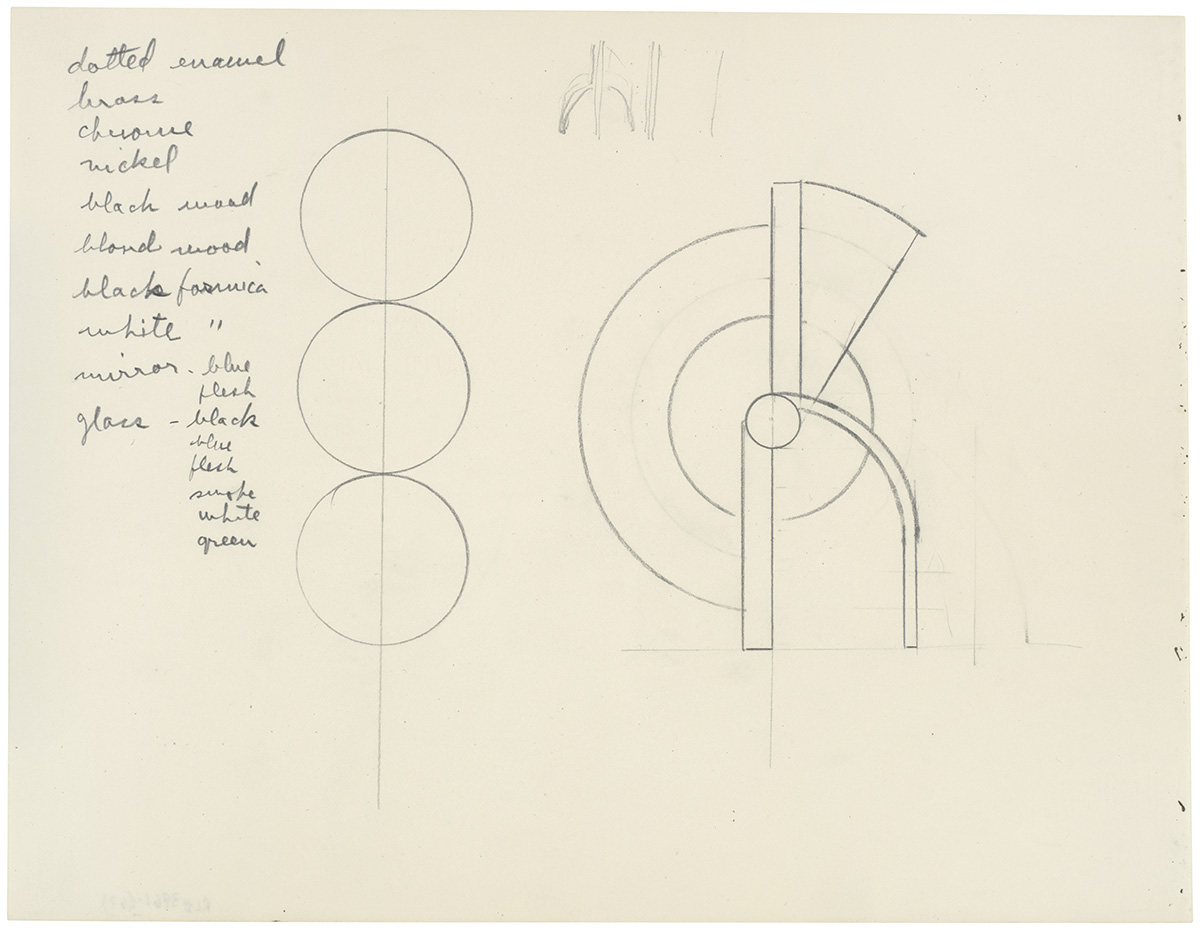 dotted enamel
brass
chrome
nickel
black wood
blond wood
black formica
white "
mirror - blue
flesh
glass - black
blue
flesh
smoke
white
green